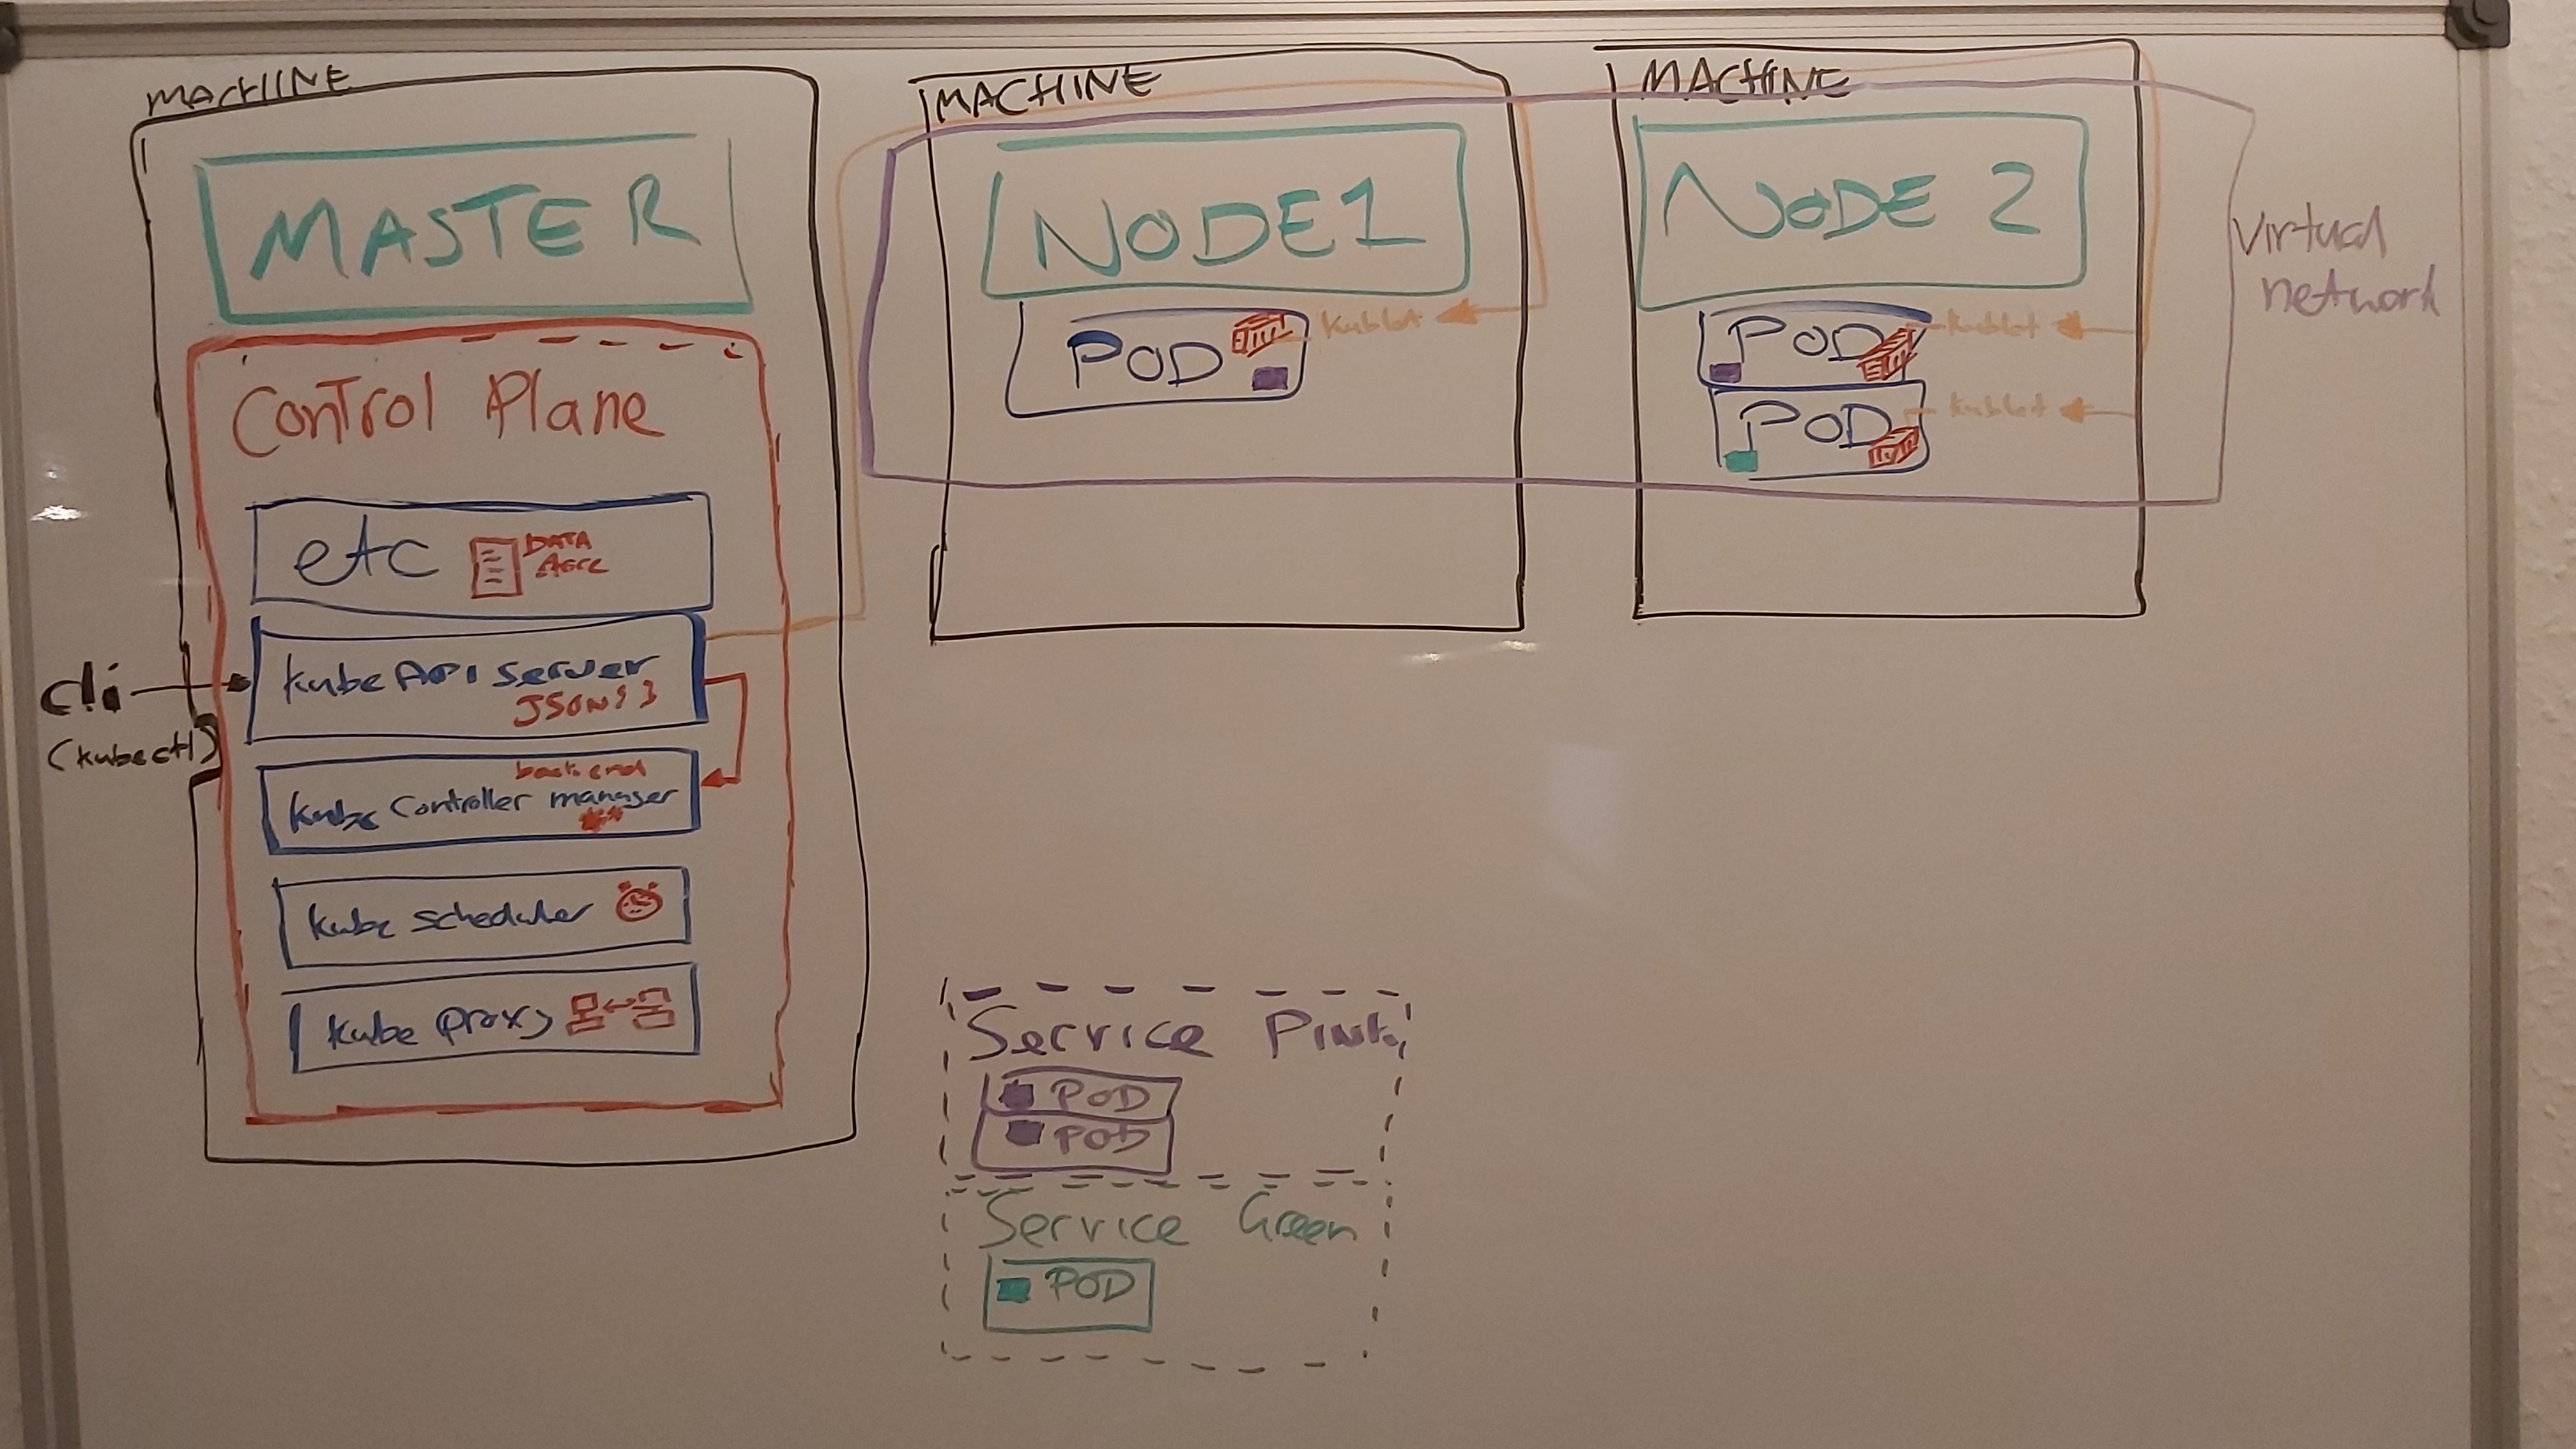 MACHINE
MASTER
Control Plane
etc
DATA
kube API server
JSON { }
cli
(kubectl)
backend
kube controller manager
kube scheduler
kube proxy
MACHINE
NODE 1
POD
kublet
MACHINE
NODE 2
POD
kublet
POD
kublet
Virtual
network
Service Pink
POD
POD
Service Green
POD